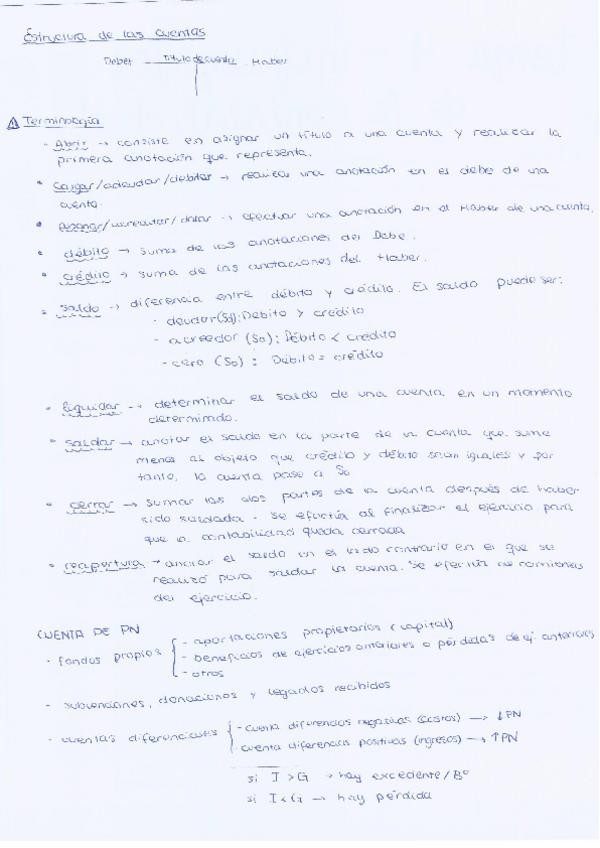 Estructura de las cuentas
Debet Título de cuenta Haber
Terminología
· Abrir → consiste en asignar un título a una cuenta y realizar la
primera anotación que representa.
• Cargar/adeudar/debitar → realizar una anotación en el debe de una
cuenta.
• Abonar/acreditar/datar → efectuar una anotación en el Haber de una cuenta.
• débito → suma de las anotaciones del Debe.
• crédito → suma de las anotaciones del Haber.
• saldo → diferencia entre débito y crédito. El saldo puede ser:
- deudor (Sd): Débito > crédito
- acreedor (Sa): Débito < crédito
- cero (So) : Débito = crédito
• liquidar → determinar el saldo de una cuenta en un momento
determinado.
• saldar → anotar el saldo en la parte de la cuenta que sume
menos al objeto que crédito y débito sean iguales y por
tanto, la cuenta pase a So
• cerrar → sumar las dos partes de la cuenta después de haber
sido saldada. Se efectúa al finalizar el ejercicio para
que la contabilidad quede cerrada
• reapertura → anotar el saldo en el lado contrario en el que se
realizó para saldar la cuenta. Se efectúa al comienzo
del ejercicio.
CUENTA DE PN
- fondos propios { - aportaciones propietarios (capital)
- beneficios de ejercicios anteriores o pérdidas de ej. anteriores
- otros
- subvenciones, donaciones y legados recibidos
- cuentas diferenciales { - cuenta diferencias negativas (Gastos) → ↓ PN
cuenta diferencias positivas (ingresos) → ↑ PN
si I > G → hay excedente/Bº
si I < G → hay pérdida